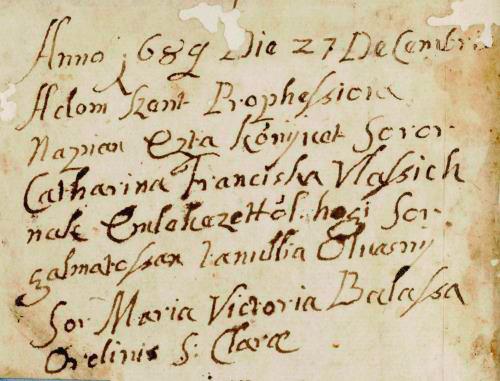 Anno 1689 Die 27 Decembris
Adom szent Prophessiora
Napian Ezta Kőnijvet Soror
Catharina Franciska Vlassich
nak Emlekezettől hogi Sor
galmatossan tanullia Oluasnij
Sor Maria Victoria Balassa
Ordinis S: Claræ